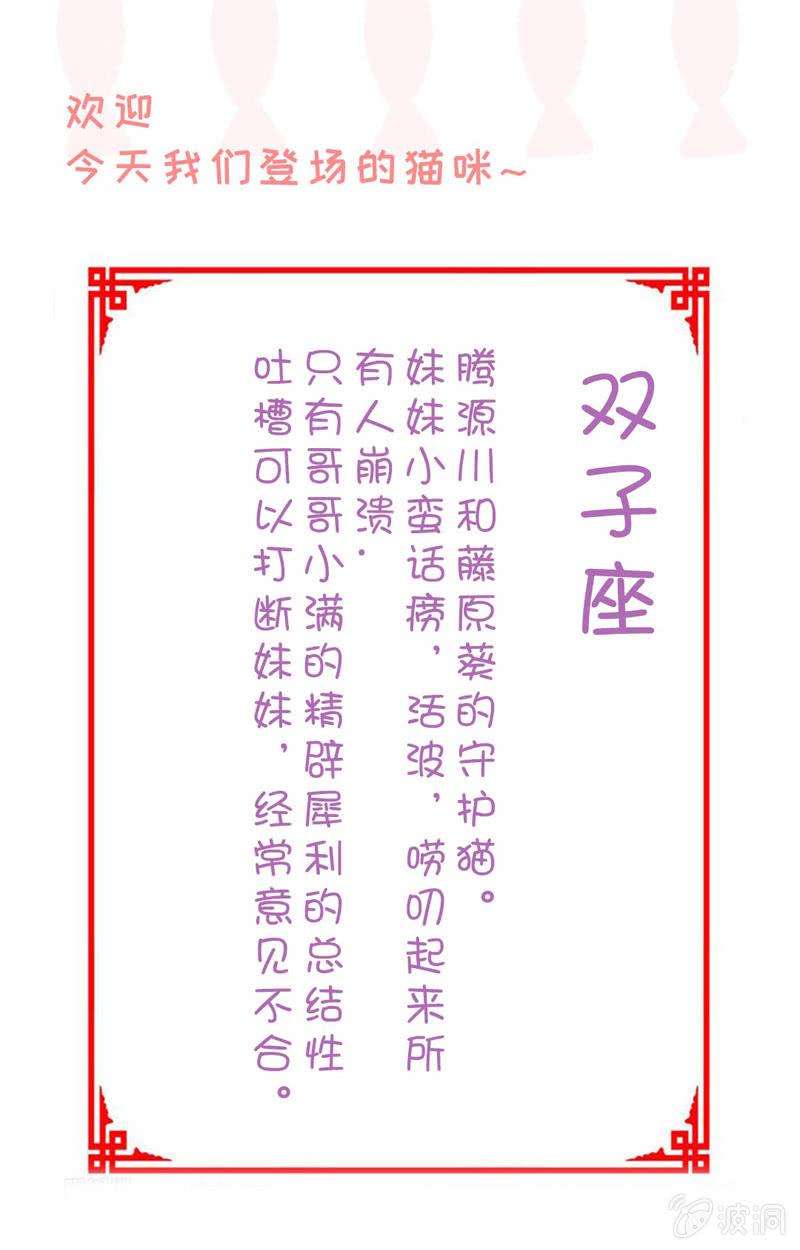 欢迎
今天我们登场的猫咪~
双子座
腾源川和藤原葵的守护猫。
妹妹小蛮话痨，活波，唠叨起来所
有人崩溃.
只有哥哥小满的精辟犀利的总结性
吐槽可以打断妹妹，经常意见不合。
波洞